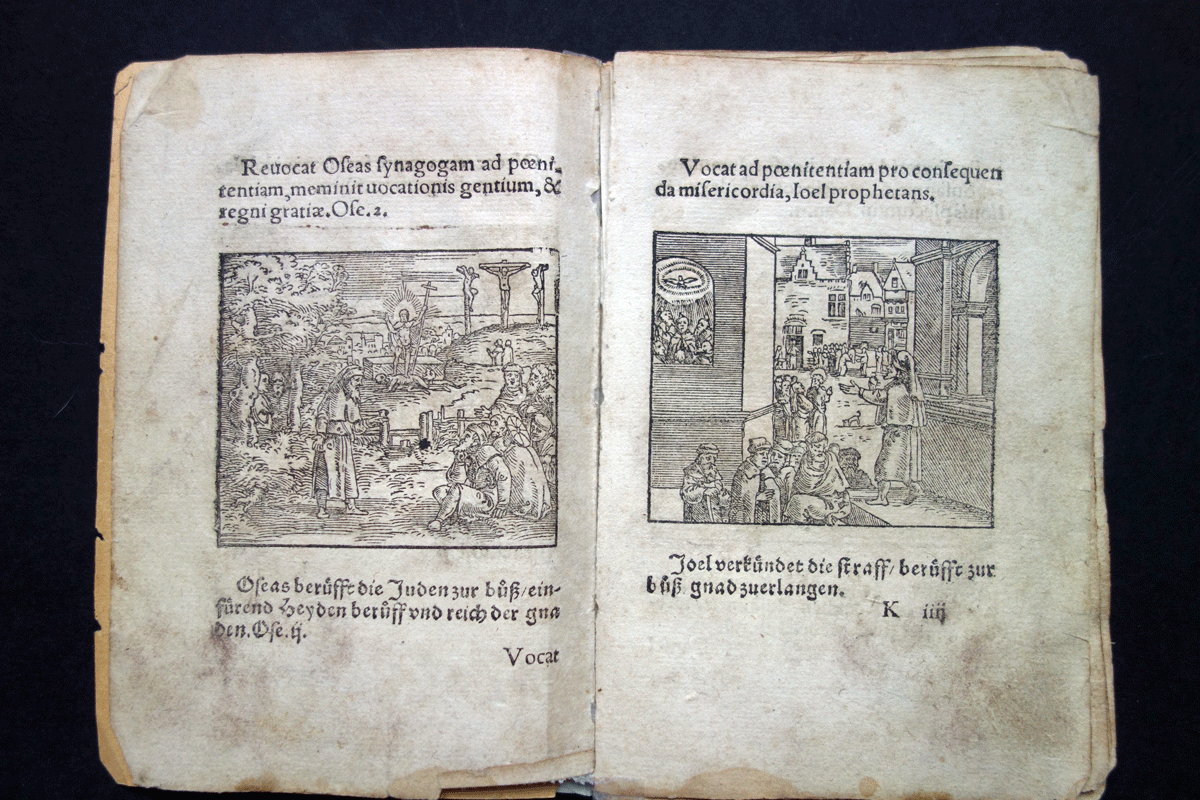 Reuocat Oſeas ſynagogam ad pœni-
tentiam, meminit uocationis gentium, &
regni gratiæ. Oſe. 2.
Oſeas berůfft die Juden zur bůß/ ein-
fůrend Heyden berůff vnd reich der gna
den. Oſe. ij.
Vocat
Vocat ad pœnitentiam pro conſequen
da miſericordia, Ioel prophetans.
Joel verkündet die ſtraff/ berůfft zur
bůß gnad zuerlangen.
K iiij